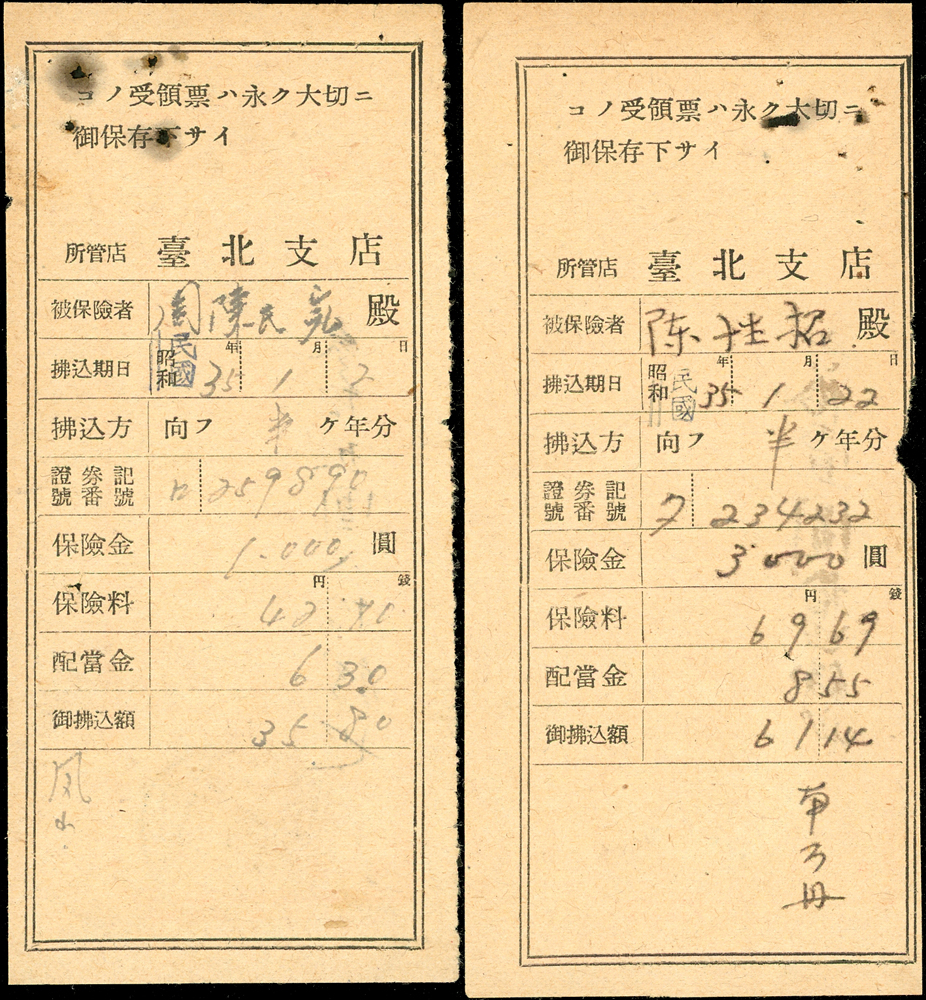 コノ受領票ハ永ク大切ニ
御保存下サイ
所管店 臺北支店
被保險者 周陳民 殿
拂込期日 昭和 民國 35年 1月 日
拂込方 向フ 半 ケ年分
證券記號番號 ロ 259890
保險金 1.000, 圓
保險料 42円 70錢
配當金 6 30
御拂込額 35 80
コノ受領票ハ永ク大切ニ
御保存下サイ
所管店 臺北支店
被保險者 陈 招 殿
拂込期日 昭和 民國 35年 1月 22日
拂込方 向フ 半 ケ年分
證券記號番號 フ 234232
保險金 3000 圓
保險料 69円 69錢
配當金 8 55
御拂込額 61 14